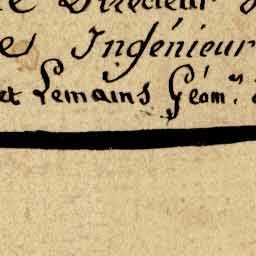 Directeur
Ingénieur
et Lemains Géom.